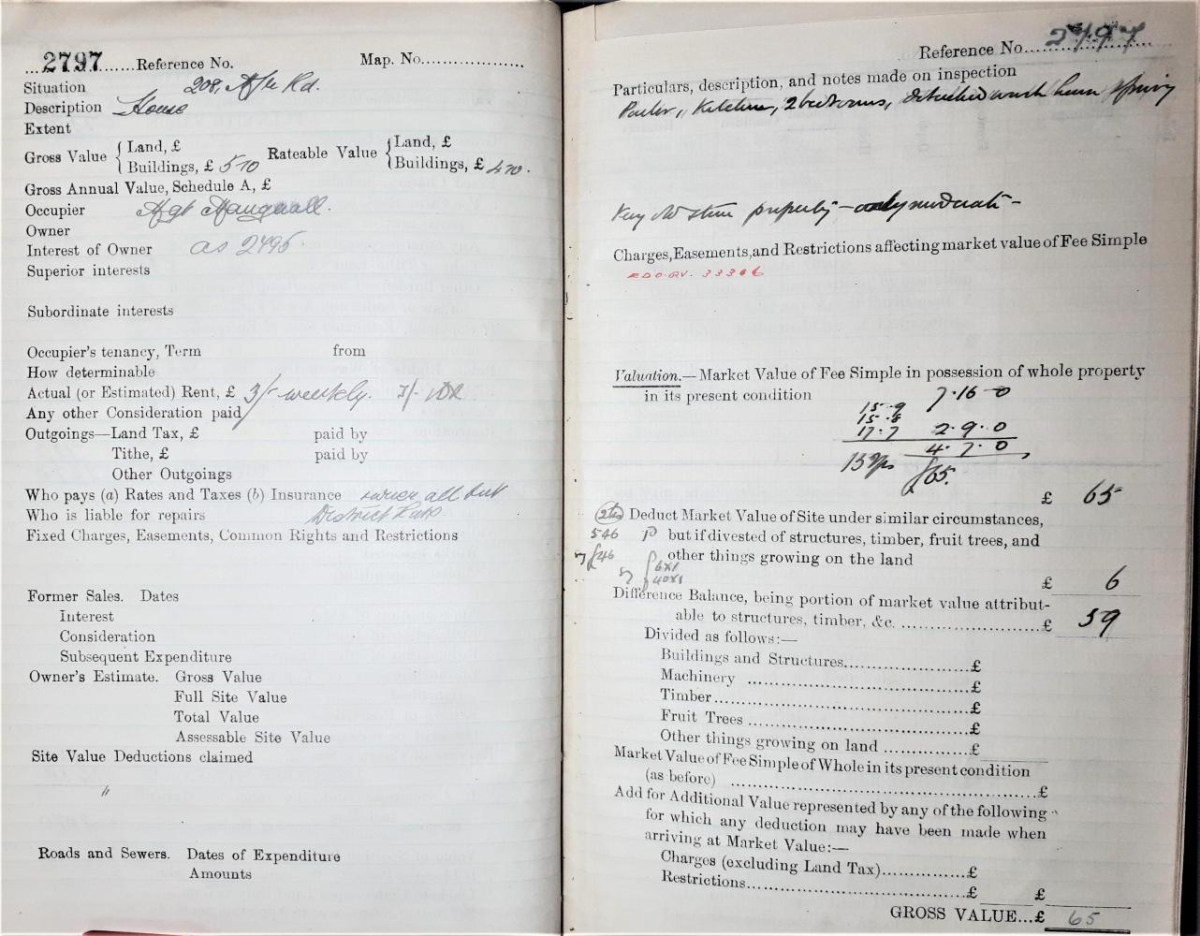 2797 Reference No. Map. No.
Situation 208, Rd.
Description House
Extent
Gross Value { Land, £ Rateable Value { Land, £
Buildings, £ 510 Buildings, £ 470.
Gross Annual Value, Schedule A, £
Occupier
Owner
Interest of Owner as 2495.
Superior interests
Subordinate interests
Occupier's tenancy, Term from
How determinable
Actual (or Estimated) Rent, £ 3/- weekly.
Any other Consideration paid
Outgoings—Land Tax, £ paid by
Tithe, £ paid by
Other Outgoings
Who pays (a) Rates and Taxes (b) Insurance owner all but
Who is liable for repairs District Rate
Fixed Charges, Easements, Common Rights and Restrictions
Former Sales. Dates
Interest
Consideration
Subsequent Expenditure
Owner's Estimate. Gross Value
Full Site Value
Total Value
Assessable Site Value
Site Value Deductions claimed
"
Roads and Sewers. Dates of Expenditure
Amounts
Reference No. 2797
Particulars, description, and notes made on inspection
Parlor, Kitchen, 2 bedrooms, detached wash house
Very old stone property - only moderate -
Charges, Easements, and Restrictions affecting market value of Fee Simple
Valuation.—Market Value of Fee Simple in possession of whole property
in its present condition
15.9 7.16.0
15.8
17.7 2.9.0
4.7.0
15 yrs £65.
£ 65
Deduct Market Value of Site under similar circumstances,
546 but if divested of structures, timber, fruit trees, and
other things growing on the land
£ 6
Difference Balance, being portion of market value attribut-
able to structures, timber, &c. £ 59
Divided as follows:—
Buildings and Structures £
Machinery £
Timber £
Fruit Trees £
Other things growing on land £
Market Value of Fee Simple of Whole in its present condition
(as before) £
Add for Additional Value represented by any of the following
for which any deduction may have been made when
arriving at Market Value:—
Charges (excluding Land Tax) £
Restrictions £ £
GROSS VALUE...£ 65